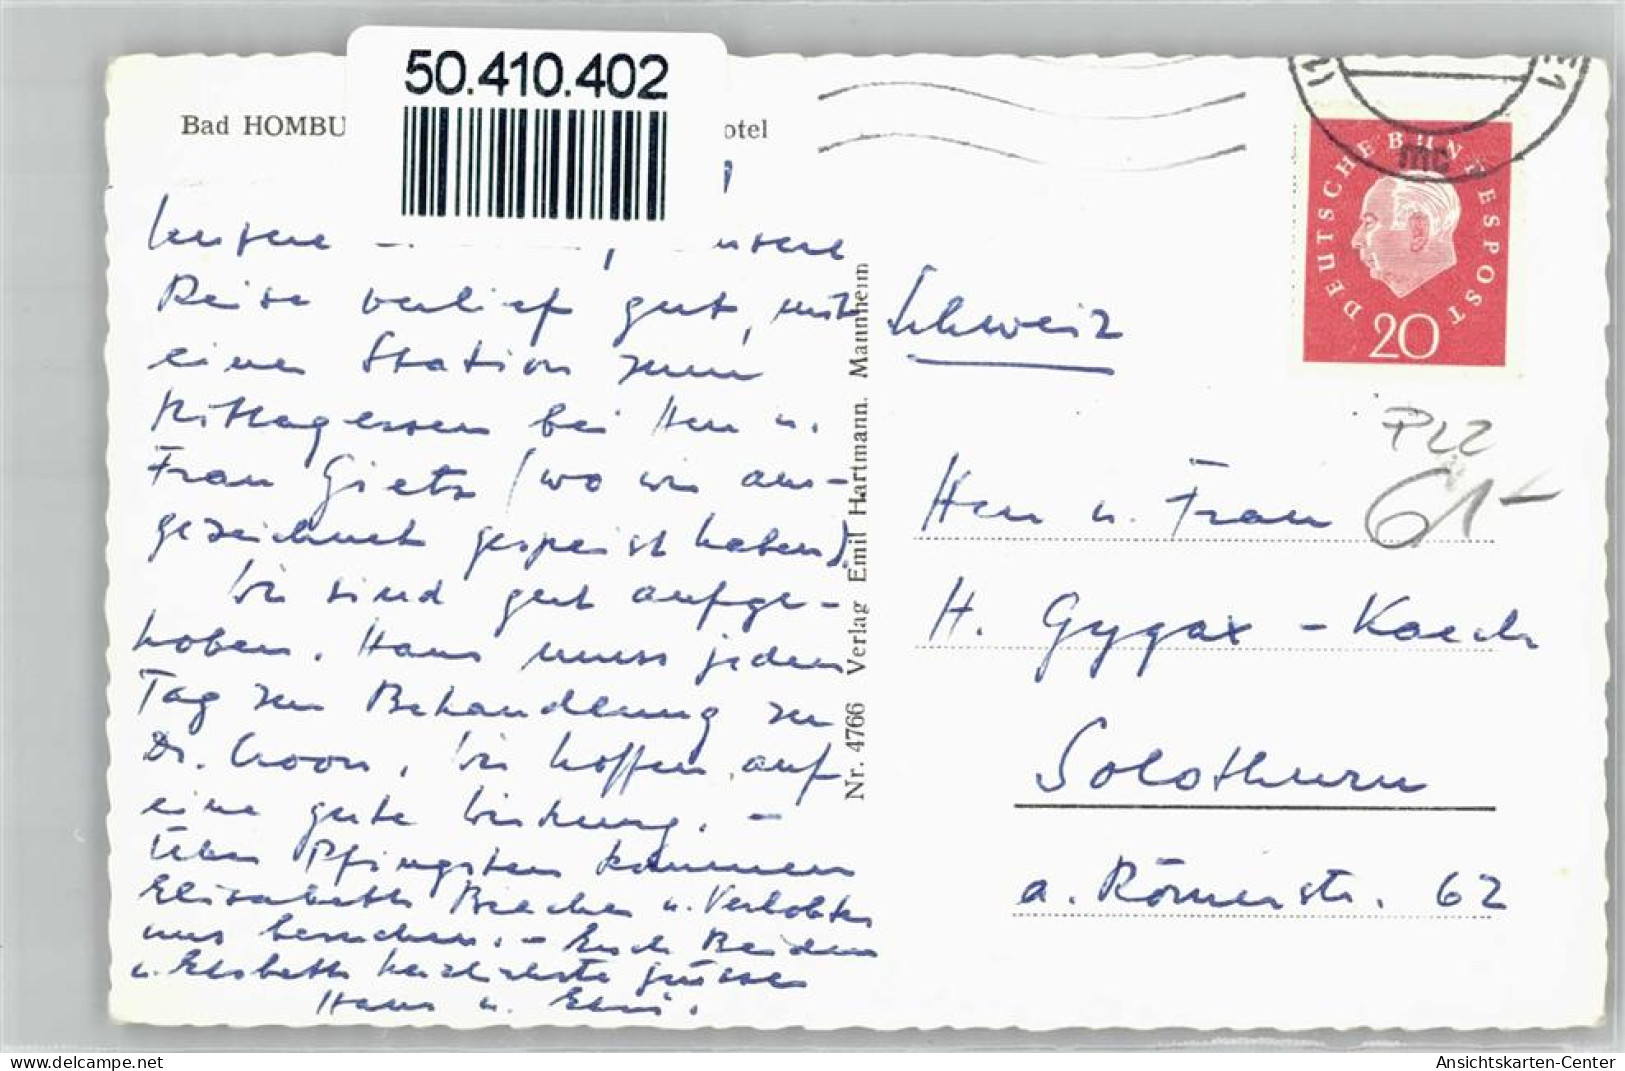 50.410.402
Bad HOMBU
otel
unsere
Reise verlief gut, mit
einer Station zum
Mittagessen bei Herr u.
Frau Gietz (wo wir aus-
gezeichnet gespeist haben).
Wir sind gut aufge-
hoben. Hans muss jeden
Tag zur Behandlung zu
Dr. Wir hoffen auf
eine gute Wirkung. –
Über Pfingsten kommen
Elisabeth u. Verlobter
uns besuchen. – Euch Beiden
u. Elsbeth herzlichste Grüsse
Hans u.
Nr. 4766 Verlag Emil Hartmann. Mannheim
DEUTSCHE BUNDESPOST
20
Schweiz
PLZ
61-
Herr u. Frau
H. Gygax - Kaech
Solothurn
a. Römerstr. 62
Ansichtskarten-Center
www.delcampe.net